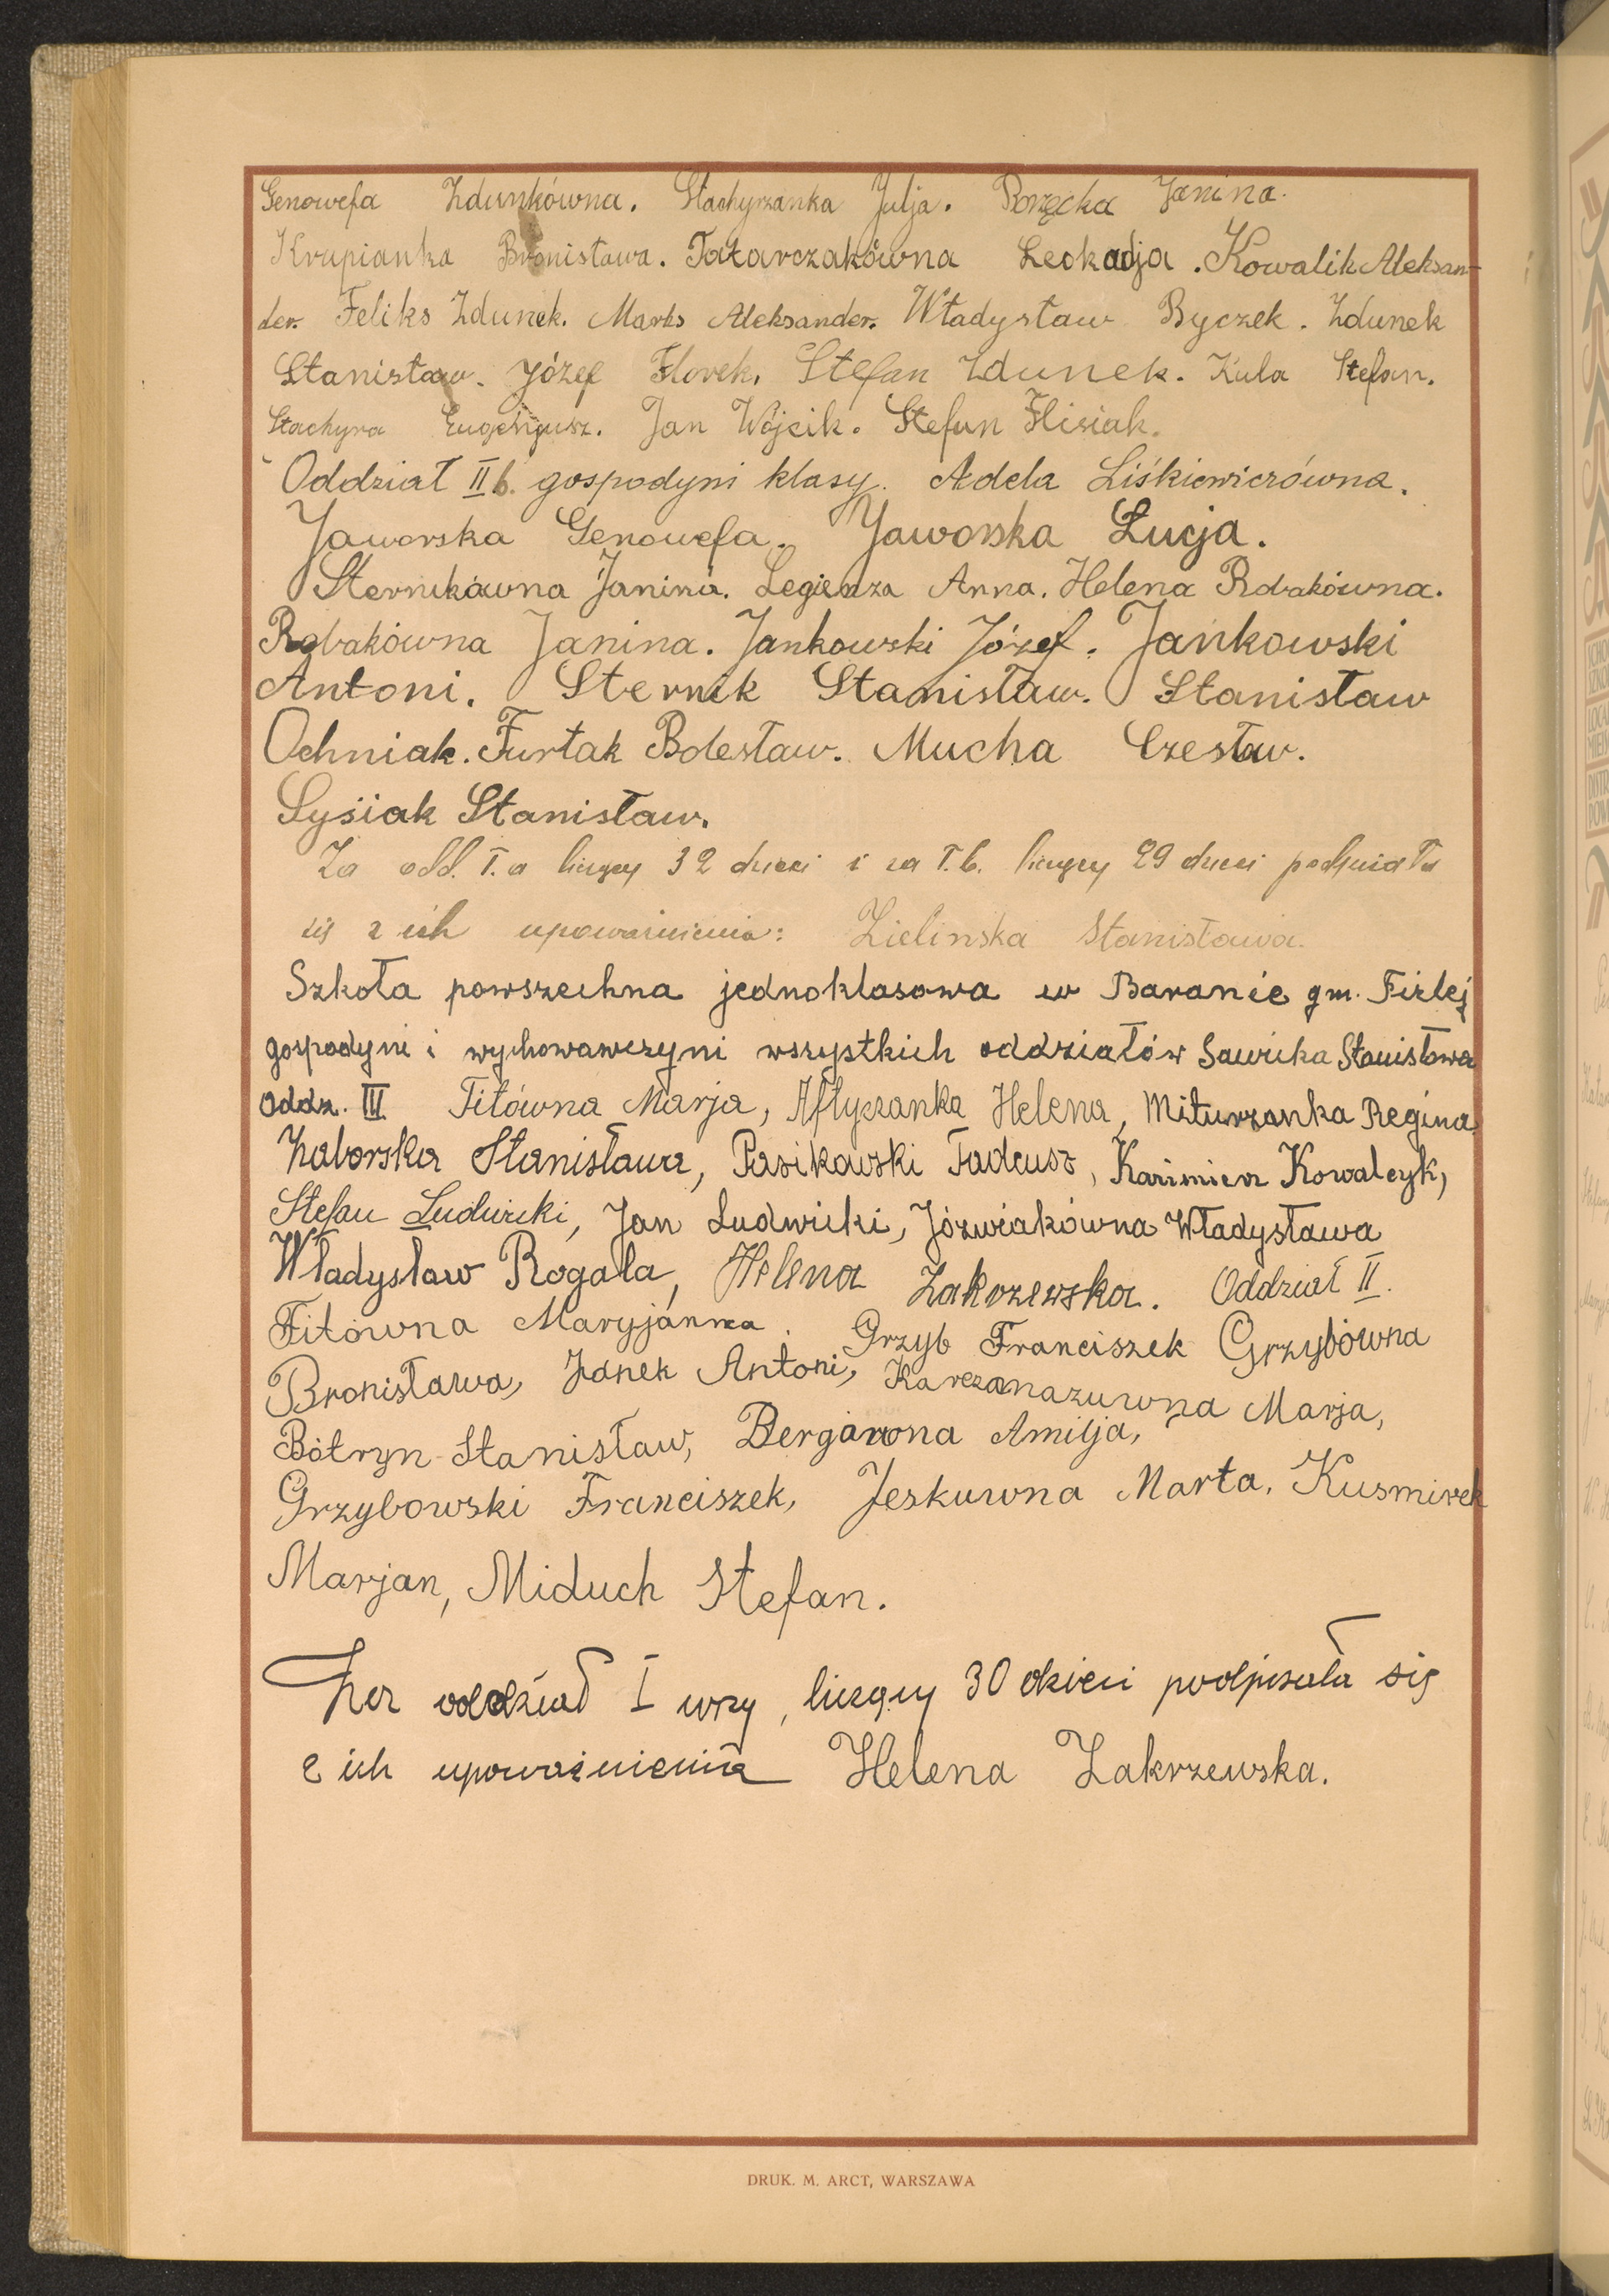 Genowefa Zdunkówna. Stachyrzanka Julja. Porzęcka Janina.
Krupianka Bronisława. Tatarczakówna Leokadja. Kowalik Aleksan-
der. Feliks Zdunek. Marks Aleksander. Władysław Byczek. Zdunek
Stanisław. Józef Florek. Stefan Zdunek. Kula Stefan.
Stachyra Eugenjusz. Jan Wójcik. Stefan Flisiak.
Oddział II b. gospodyni klasy. Adela Liśkiewiczówna.
Jaworska Genowefa. Jaworska Łucja.
Sternikówna Janina. Legienza Anna. Helena Robakówna.
Robakówna Janina. Jankowski Józef. Jankowski
Antoni. Sternik Stanisław. Stanisław
Ochniak. Furtak Bolesław. Mucha Czesław.
Sysiak Stanisław.
Za odd. I. a liczący 32 dzieci i za I. b. liczący 29 dzieci podpisała
się z ich upoważnienia: Zielinska Stanisława.
Szkoła powszechna jednoklasowa w Baranie gm. Firlej
gospodyni i wychowawczyni wszystkich oddziałów Sawicka Stanisława
Oddz. III Fitówna Marja, Aftyczanka Helena, Miturzanka Regina,
Zaborska Stanisława, Pasikowski Tadeusz, Kazimierz Kowalcyk,
Stefan Ludwicki, Jan Ludwicki, Józwiakówna Władysława
Władysław Rogala, Helena Zakrzewska. Oddział II.
Fitówna Maryjanna. Grzyb Franciszek Grzybówna
Bronisława, Janek Antoni, Karczmazuwna Marja,
Bótryn Stanisław, Amilja,
Grzybowski Franciszek, Jeskuwna Marta, Kusmirek
Marjan, Miduch Stefan.
Za oddział I wszy, liczący 30 dzieci podpisała się
z ich upoważnienia Helena Zakrzewska.
DRUK. M. ARCT, WARSZAWA